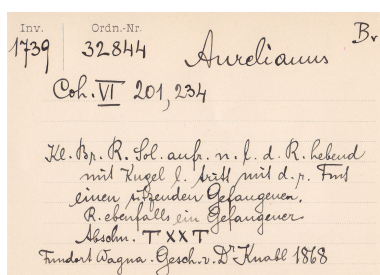 Inv. Ordn.-Nr. Br
1739 32844 Aurelianus
Coh. VI 201,234
Kl. Br. R. Sol. aufr. n. l. d. R. hebend
mit Kugel l. tritt mit d. r. Fuß
einen sitzenden Gefangenen.
R. ebenfalls ein Gefangener
Abschn. TXXT
Fundort Wagna. Gesch. v. Dr Knabl 1868